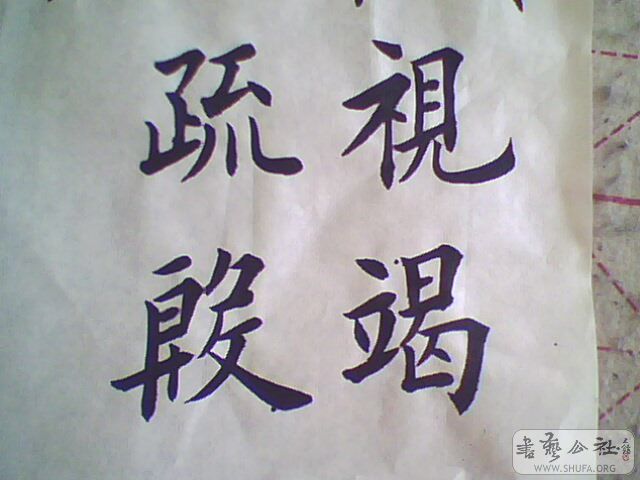 視竭
疏殷
書藝公社
WWW.SHUFA.ORG